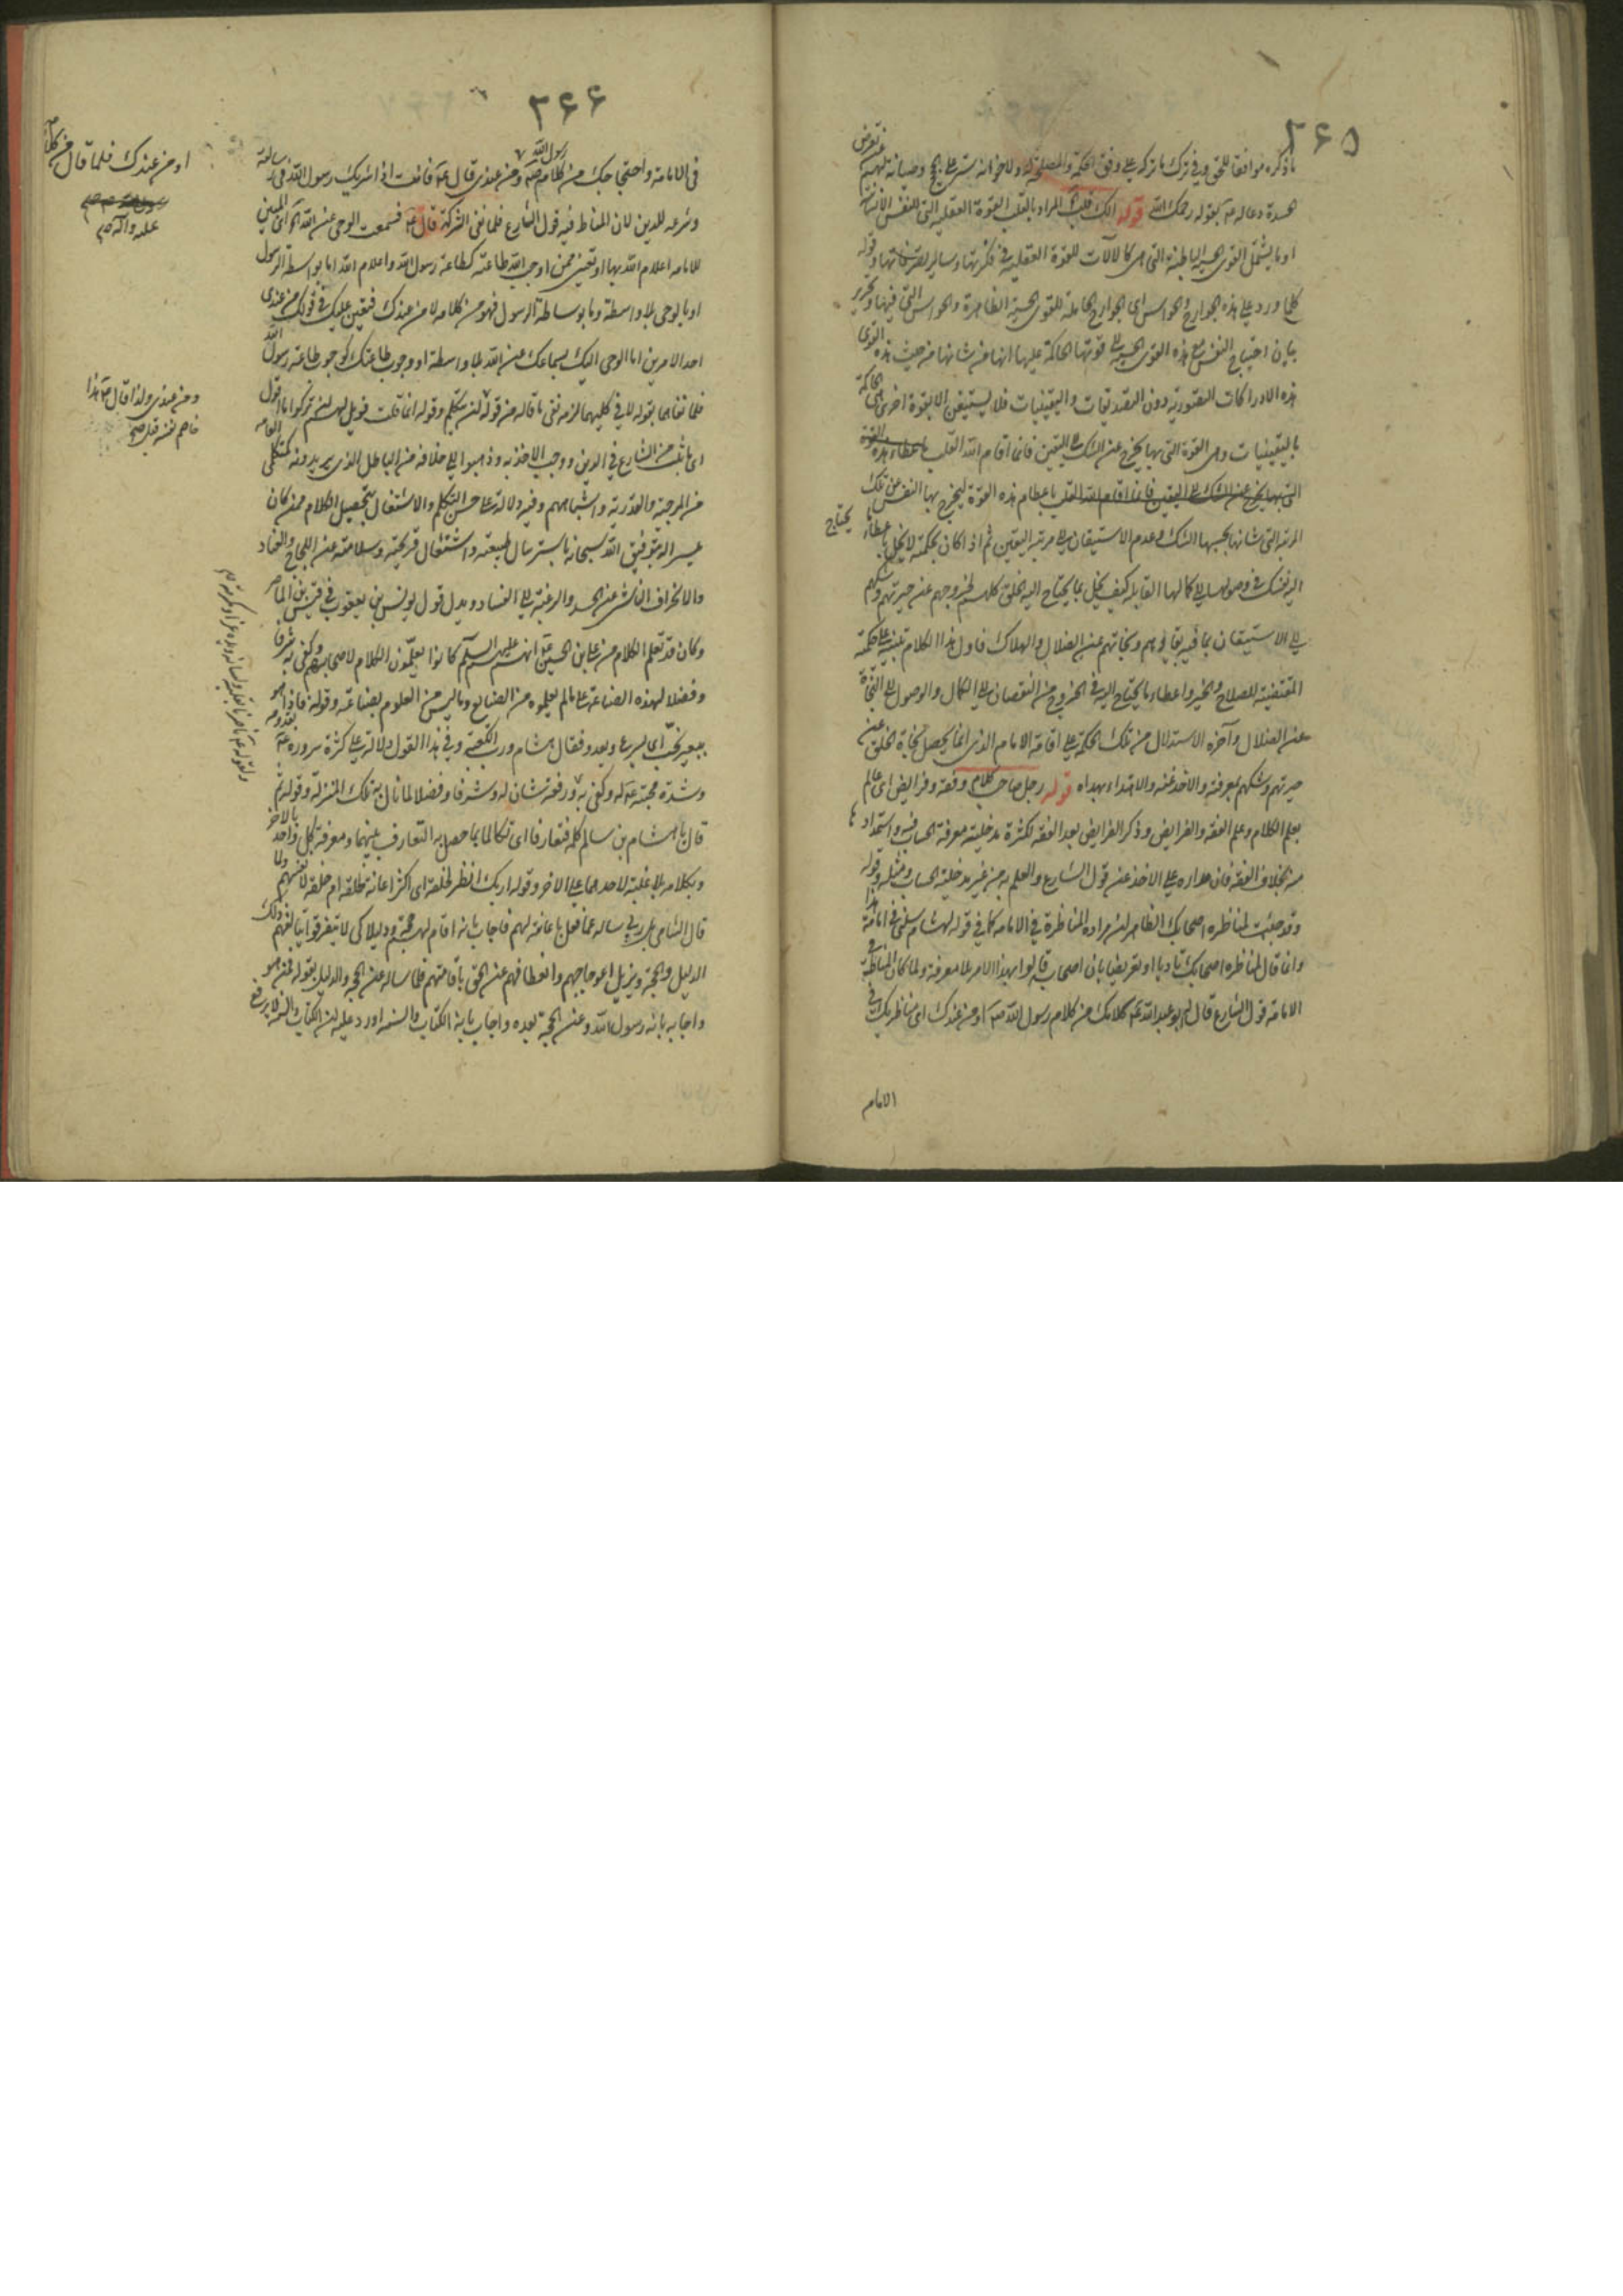 ٢٦٥
ماذكره موافقا للحق وفى ترك ما تركه على وفق الحكمة والمصلحة له ولاخوانه ستر على
هشدة دعا له بقوله رحمك الله قوله الك قلب المراد بالقلب القوة العقلية التى للنفس الانسانية
او ما يشتمل القوى الحسية الباطنة التى هى كالآلات للقوة العقلية فى فكرتها وساير تصرفاتها وقوله
كلما ورد على هذه الجوارح والحواس اى الجوارح الحاملة للقوى الحسية الظاهرة والحواس التى فيها وتحرير
بيان احتياج النفس مع هذه القوى الحسية الى قوتها الحاكمة عليها انها من شانها من حيث هذه القوى
هذه الادراكات التصورية دون التصديقات واليقينيات فلا يستيقن الا بقوة اخرى هى الحاكمة
باليقينيات وهى القوة التى بها يخرج عن الشك الى اليقين فانما اقام الله القلب باعطاء هذه القوة
التى بها يخرج عن الشك الى اليقين فانما اقام الله القلب باعطاء هذه القوة ليخرج بها النفس عن تلك
المرتبة التى شانها بحسبها الشك وعدم الاستيقان الى مرتبة اليقين ثم اذا كان بحكمته لا يخل باعطاء ما يحتاج
اليه نفسك فى وصولها الى كمالها القابلة له كيف يخل بما يحتاج اليه الخلق كلهم لخروجهم عن حيرتهم وشكهم
الى الاستيقان بما فيه بقاؤهم ونجاتهم عن الضلال والهلاك فاول هذا الكلام تنبيه على حكمته
المقتضية للصلاح والخير واعطاء ما يحتاج اليه فى الخروج من النقصان الى الكمال والوصول الى النجاة
عن الضلال وآخره الاستدلال من تلك الحكمة على اقامة الامام الذى انما يحصل نجاة الخلق عن
حيرتهم وشكهم بمعرفته والاخذ عنه والاهتداء بهداه قوله رجل صاحب كلام وفقه وفرايض اى عالم
بعلم الكلام وعلم الفقه والفرايض وذكر الفرايض بعد الفقه لكثرة مدخلية معرفة الحساب فيه واستمدادها
منه بخلاف الفقه فان مداره على الاخذ عن قول الشارع والعلم به من غير مدخلية الحساب ومثله وقوله
وقد جئت لمناظرة اصحابك الظاهر ان مراده المناظرة فى الامامة كما فى قوله لهشام سلنى فى امامة هذا
وانما قال لمناظرة اصحابك تأدبا او تعريضا بان اصحابك قالوا بهذا الامر بلا معرفة ولما كان المناط فى
الامامة قول الشارع قال له ابو عبد الله ع كلامك من كلام رسول الله ص او من عندك اى مناظرتك فى
الامام
٢٦٦
فى الامامة واحتجاجك من كلام رسول الله ص ومن عندى قال ع فانت اذا شريك رسول الله فى رسالته
وشرعه للدين لان المناط فيه قول الشارع فلما نفى الشركة قال ع فسمعت الوحى عن الله اى المبين
للامامة اعلام الله بها او تعيين ممن اوجب الله طاعته كطاعة رسول الله واعلام الله اما بواسطة الرسول
او بالوحى بلا واسطة وما بوساطة الرسول فهو من كلامه لا من عندك فتعين عليك فى قولك من عندى
احد الامرين اما الوحى اليك بسماعك عن الله بلا واسطة او وجوب طاعتك كوجوب طاعة رسول الله
فلما نفاهما بقوله لا فى كليهما لزمه نفى ما قاله من قوله ان يتكلم وقوله انما قلت فويل لهم ان تركوا ما اقول
اى ما ثبت من الشارع فى الدين ووجب الاخذ به وذهبوا الى خلافه من الباطل الذى يريدونه كمتكلمى العامة
من المرجئة والقدرية واشباههم وفيه دلالة على حسن التكلم والاشتغال بتحصيل الكلام ممن كان
ميسرا له بتوفيق الله سبحانه باسترسال طبيعته واشتغال قريحته وسلامته عن اللجاج والعناد
والانحراف الناشى عن الحسد والرغبة الى الفساد ويدل قول يونس بن يعقوب فى قيس بن الماصر
وكان قد تعلم الكلام من على بن الحسين ع انهم عليهم السلم كانوا يعلمون الكلام لاصحابهم وكفى به شرفا
وفضلا لهذه الصناعة على ما لم يعلموه من الصنايع وما ليس من العلوم بصناعة وقوله فاذا هو
ببعير يخب اى يسرع ويعدو فقال هشام ورب الكعبة وفى هذا القول دلالة على كثرة سروره ع بقدومه
وشدة محبته ع له وكفى به رفعة شان له وشرفا وفضلا لما نال به تلك المنزلة وقوله ثم
قال يا هشام بن سالم كلمه فتعارفا اى تكالما بما حصل به التعارف بينهما ومعرفة كل واحد بالآخر
وبكلامه بلا غلبة لاحدهما على الآخر وقوله اربك انظر لخلقه اى اكثر اعانة لخلقه ام خلقه لانفسهم ولما
قال الشامى بل ربى ساله عما فعل باعانته لهم فاجاب بانه اقام لهم حجة ودليلا كى لا يتفرقوا يتألفهم ذلك
الدليل والحجة ويزيل اعوجاجهم وانعطافهم عن الحق باقامتهم فلما ساله عن الحجة والدليل بقوله فمن هو
واجابه بانه رسول الله وعن الحجة بعده واجاب بانه الكتاب والسنة اورد عليه ان الكتاب والسنة لا يرفع
او من عندك فلما قال من كلام
رسول الله ص
عليه وآله صح
ومن عندى ولذا قال ص هذا